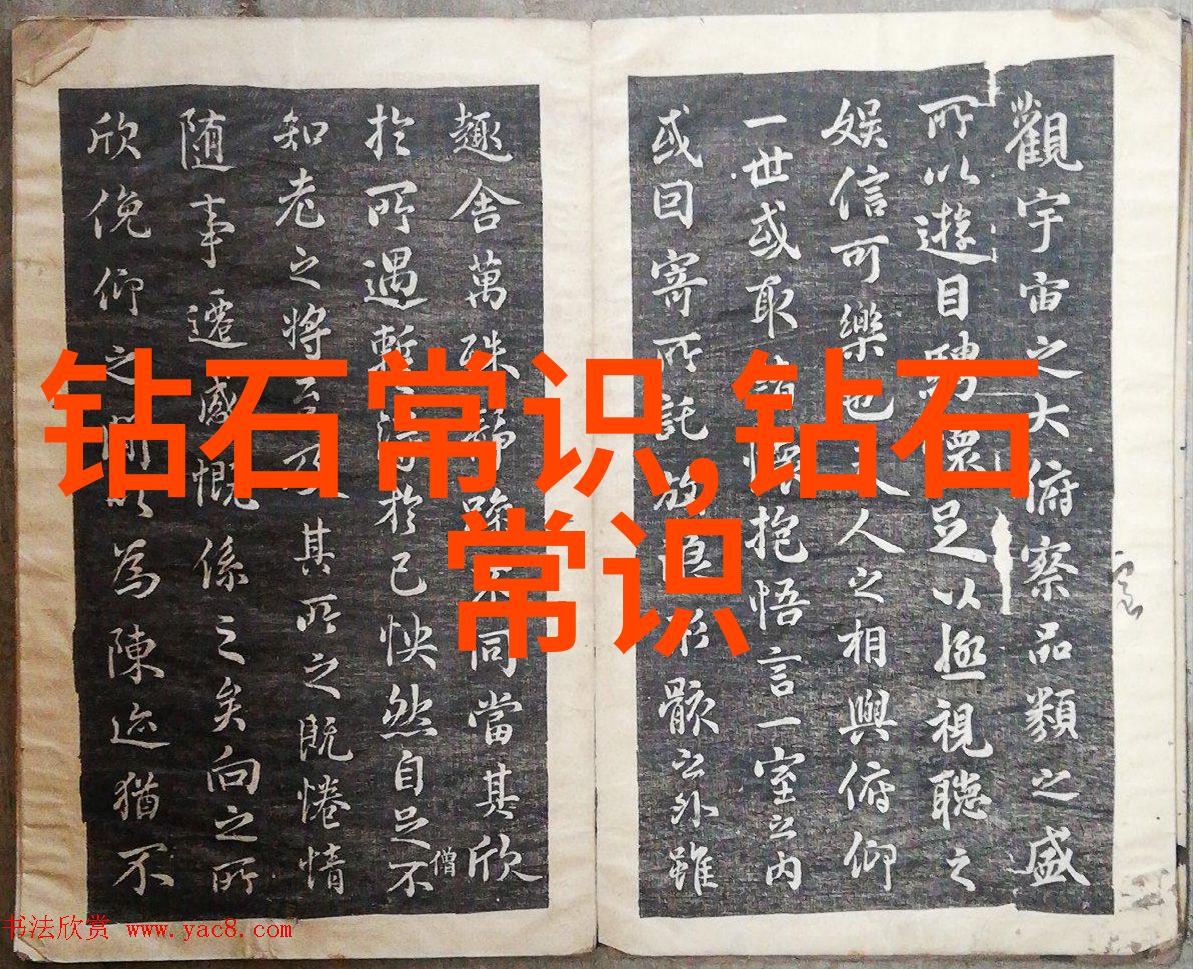 钻石常识,钻石
常识
觀宇宙之大俯察品類之盛
所以遊目騁懷足以極視聽之
娛信可樂也人之相與俯仰
一世或取諸抱悟言一室之內
或因寄所託放骸之外雖
趣舍萬殊靜同當其欣
於所遇暫於己怏然自足不
僧
知老之將其所之既惓情
隨事遷感慨係之矣向之所
欣俛仰之以為陳迹猶不
书法欣赏 www.yac8.com